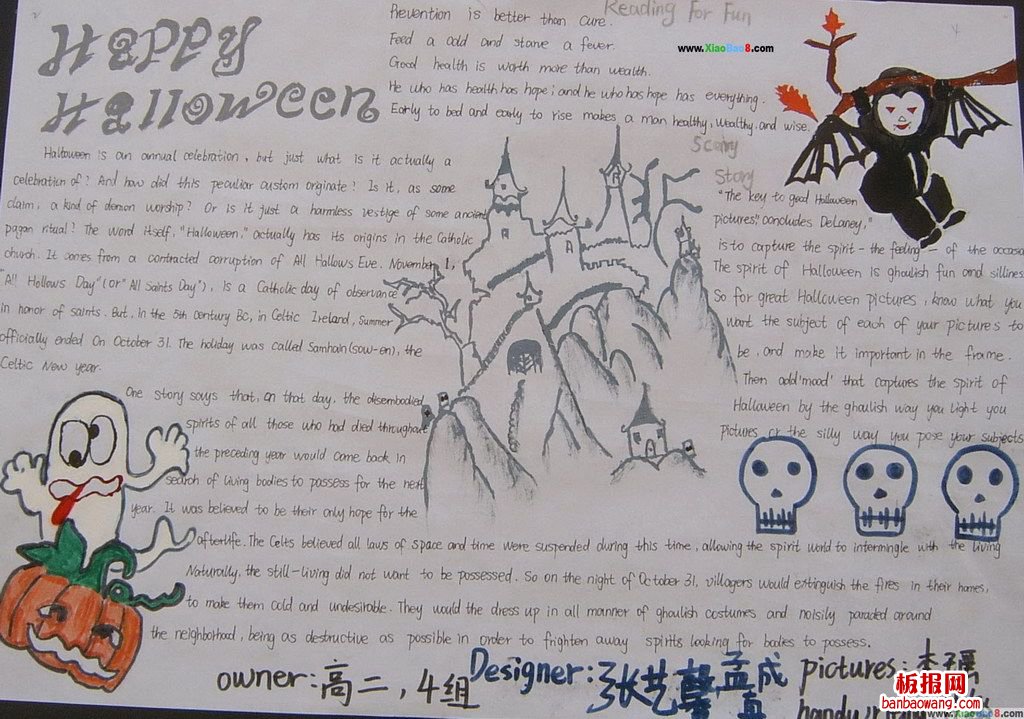 Happy
Halloween
Reading For Fun
Prevention is better than cure.
Feed a cold and starve a fever.
Good health is worth more than wealth.
He who has health has hope; and he who has hope has everything.
Early to bed and early to rise makes a man healthy, wealthy, and wise.
www.XiaoBao8.com
Halloween is an annual celebration, but just what is it actually a
celebration of? And how did this peculiar custom originate? Is it, as some
claim, a kind of demon worship? Or is it just a harmless vestige of some ancient
pagan ritual? The word itself, "Halloween," actually has its origins in the Catholic
church. It comes from a contracted corruption of All Hallows Eve. November 1,
"All Hollows Day" (or "All Saints Day"), is a Catholic day of observance
in honor of saints. But, in the 5th century BC, in Celtic Ireland, summer
officially ended On October 31. The holiday was called Samhain (sow-en), the
Celtic New year.
One story says that, on that day, the disembodied
spirits of all those who had died throughout
the preceding year would come back in
search of living bodies to possess for the next
year. It was believed to be their only hope for the
afterlife. The Celts believed all laws of space and time were suspended during this time, allowing the spirit world to intermingle with the living
Naturally, the still-living did not want to be possessed. So on the night of October 31, villagers would extinguish the fires in their homes,
to make them cold and undesirable. They would the dress up in all manner of ghoulish costumes and noisily paraded around
the neighborhood, being as destructive as possible in order to frighten away spirits looking for bodies to possess.
Scary
Story
"The key to good Halloween
pictures," concludes DeLaney,"
is to capture the spirit - the feeling - of the occasion
The spirit of Halloween is ghoulish fun and silliness
So for great Halloween pictures, know what you
want the subject of each of your pictures to
be, and make it important in the frame.
Then add 'mood' that captures the spirit of
Halloween by the ghoulish way you light you
pictures or the silly way you pose your subjects
owner: 高二, 4组
Designer: 张艺馨 孟成真
pictures: 李
板报网
banbaowang.com
www.XiaoBao8.com